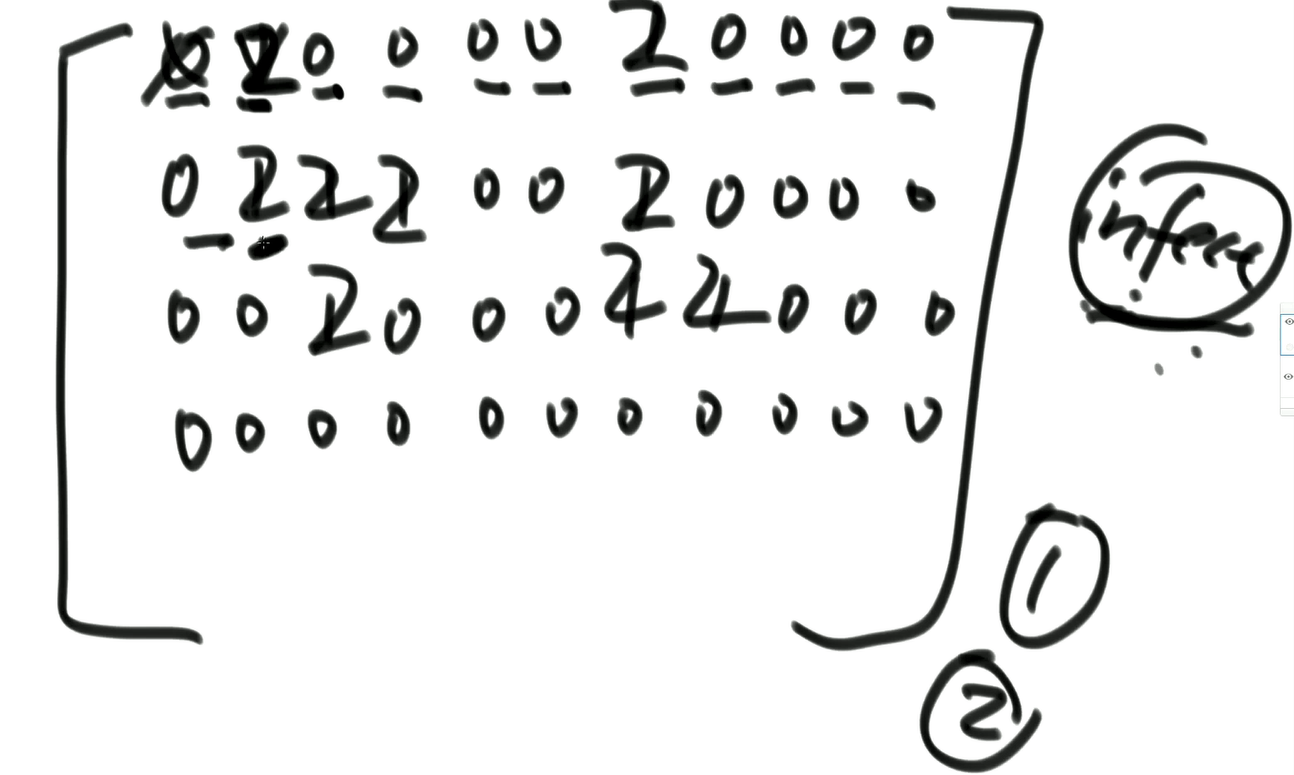 0 2 0 0 0 0 2 0 0 0 0
0 2 2 2 0 0 2 0 0 0 0
0 0 2 0 0 0 2 2 0 0 0
0 0 0 0 0 0 0 0 0 0 0
1
2